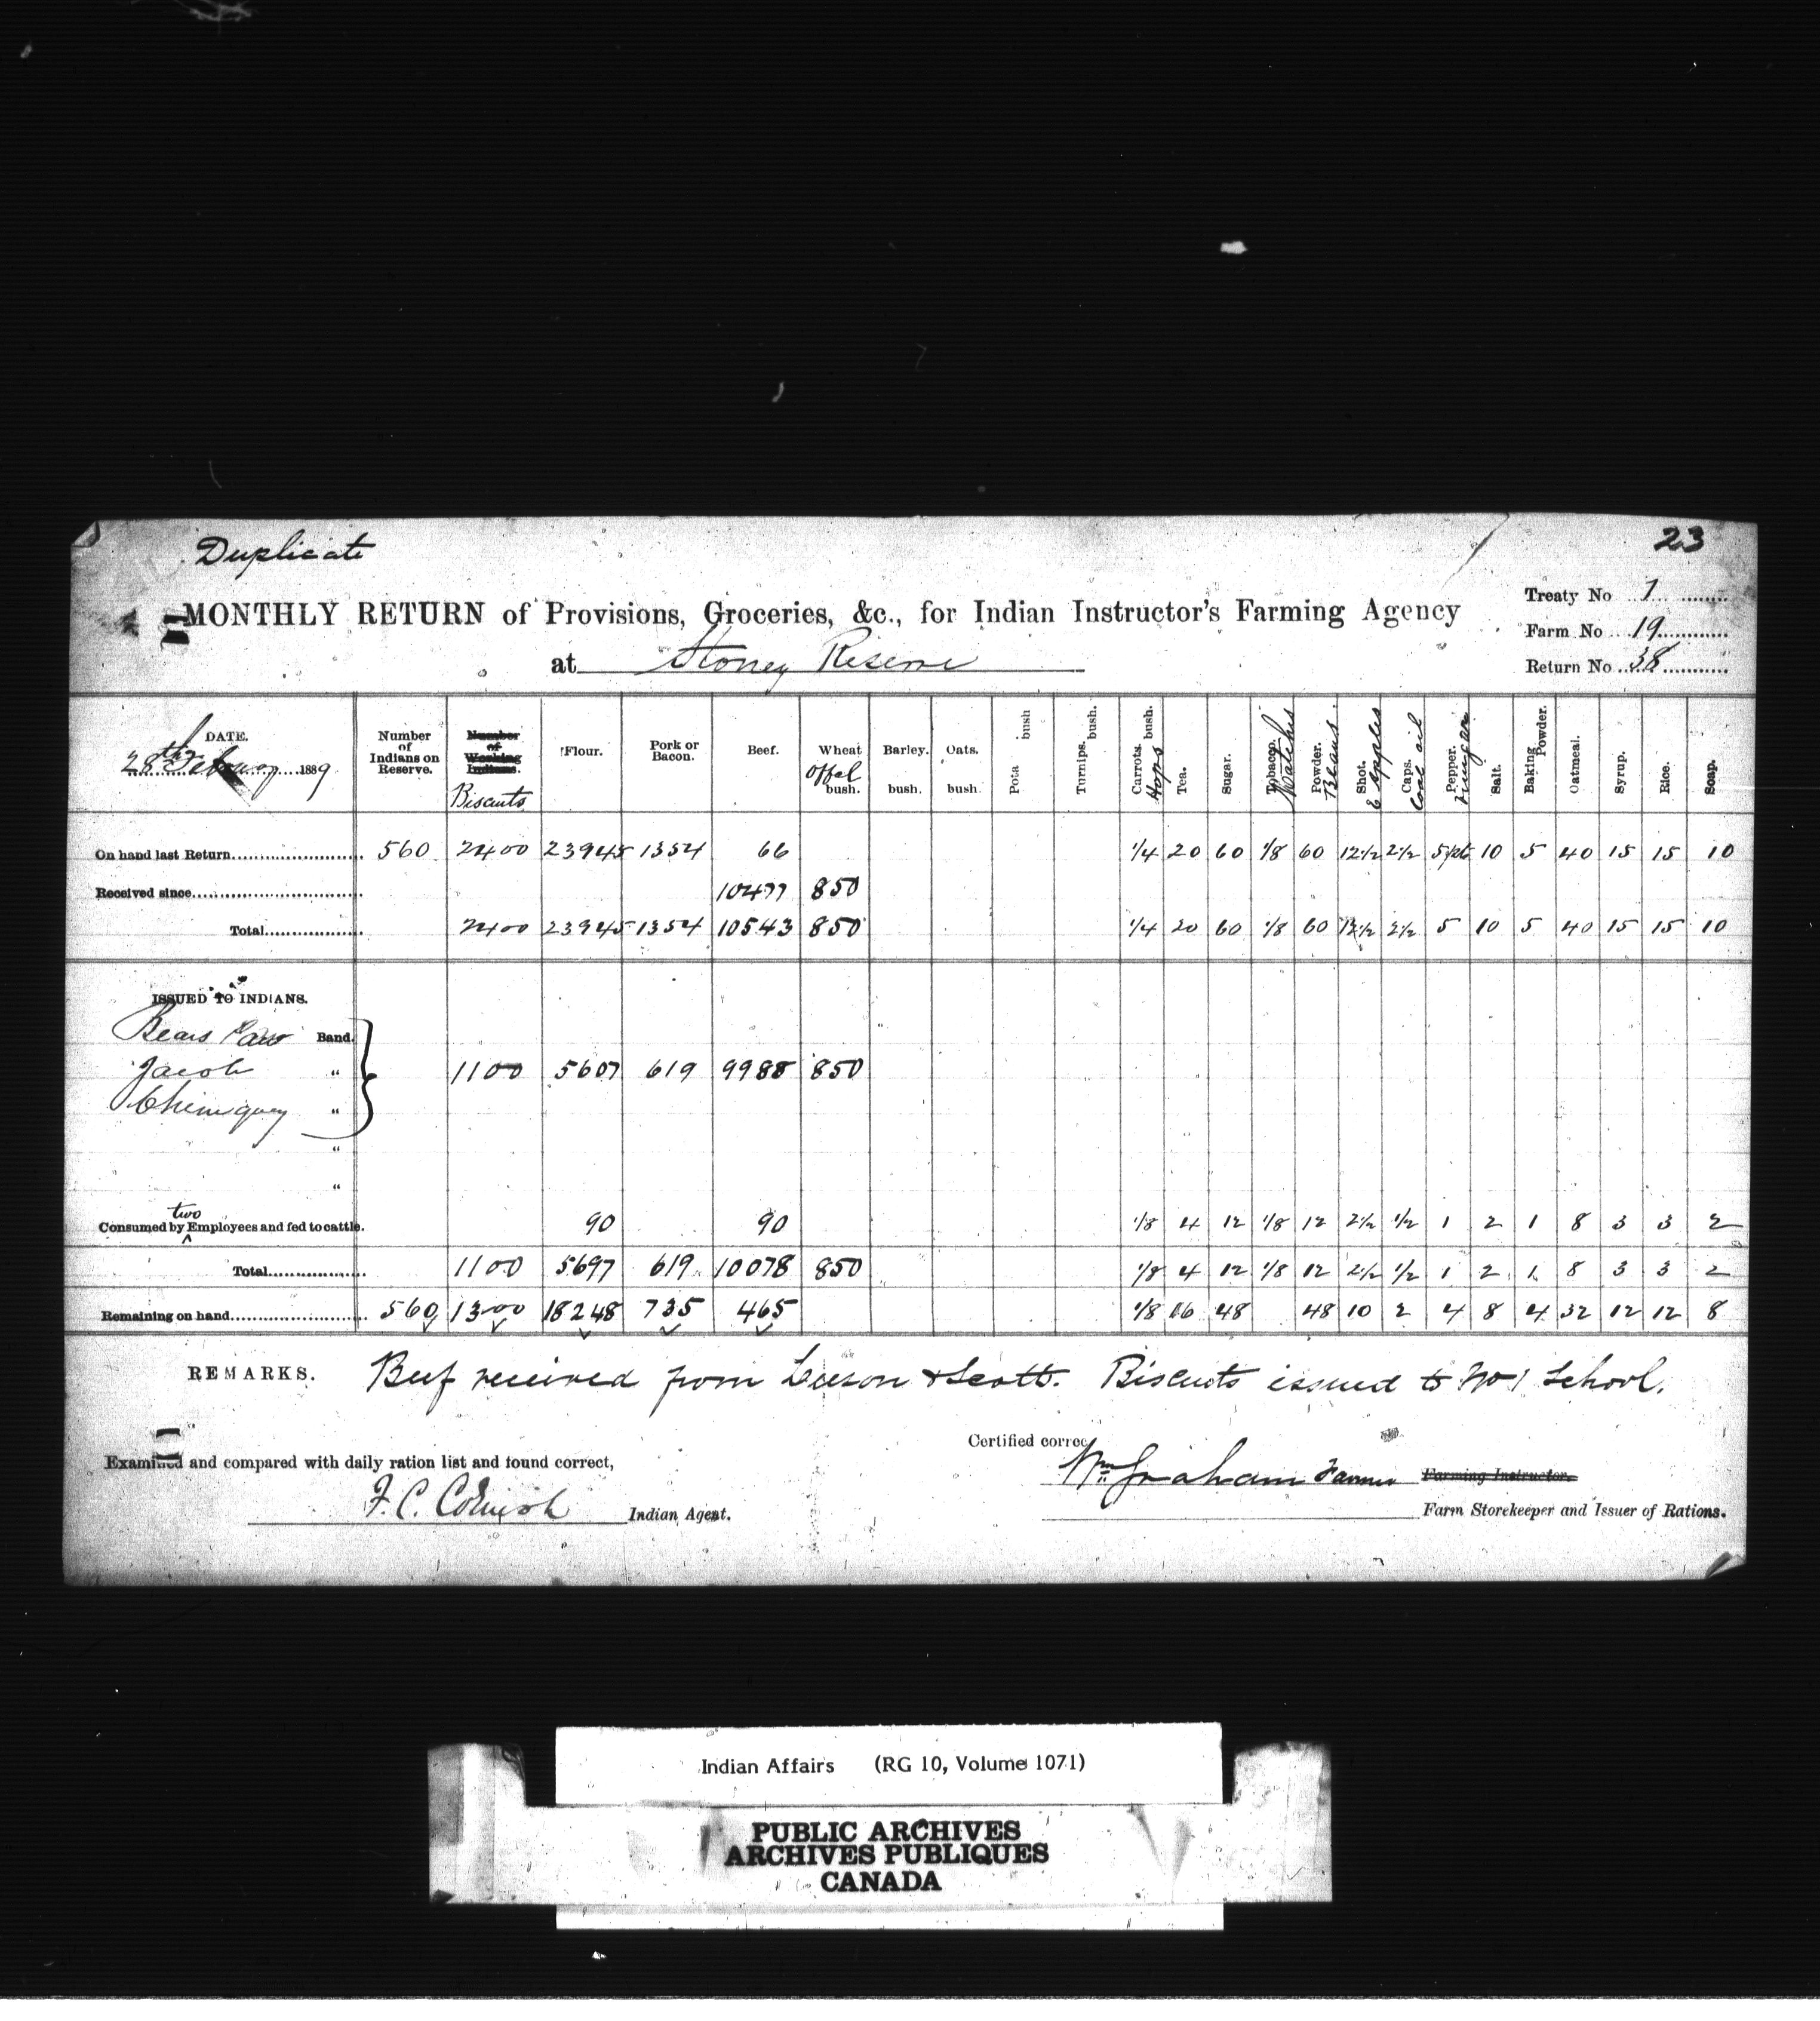 Duplicate
23
MONTHLY RETURN of Provisions, Groceries, &c., for Indian Instructor's Farming Agency
at Stoney Reserve
Treaty No 7
Farm No 19
Return No 38
DATE. 28th February 1889
Number of Indians on Reserve. Number of Working Indians. Biscuts Flour. Pork or Bacon. Beef. Wheat Offal bush. Barley. bush. Oats. bush. Pota bush Turnips. bush. Carrots. bush. Hops Tea. Sugar. Tobacco. Matches Powder. Beans. Shot. E Apples Caps. Coal oil Pepper. Vinegar Salt. Baking Powder. Oatmeal. Syrup. Rice. Soap.
On hand last Return 560 2400 23945 1354 66 1/4 20 60 1/8 60 12 1/2 2 1/2 5 10 5 40 15 15 10
Received since 10477 850
Total 2400 23945 1354 10543 850 1/4 20 60 1/8 60 12 1/2 2 1/2 5 10 5 40 15 15 10
ISSUED TO INDIANS.
Bears Paw Band.
Jacob " 1100 5607 619 9988 850
Chiniquay "
"
"
Consumed by two Employees and fed to cattle. 90 90 1/8 4 12 1/8 12 2 1/2 1/2 1 2 1 8 3 3 2
Total 1100 5697 619 10078 850 1/8 4 12 1/8 12 2 1/2 1/2 1 2 1 8 3 3 2
Remaining on hand 560 1300 18248 735 465 1/8 16 48 48 10 2 4 8 4 32 12 12 8
REMARKS. Beef received from Leeson & Scott. Biscuts issued to No 1 School.
Certified correc
Examined and compared with daily ration list and found correct,
Wm Graham Farmer Farming Instructor.
F. C. Cornish Indian Agent.
Farm Storekeeper and Issuer of Rations.
Indian Affairs (RG 10, Volume 1071)
PUBLIC ARCHIVES
ARCHIVES PUBLIQUES
CANADA